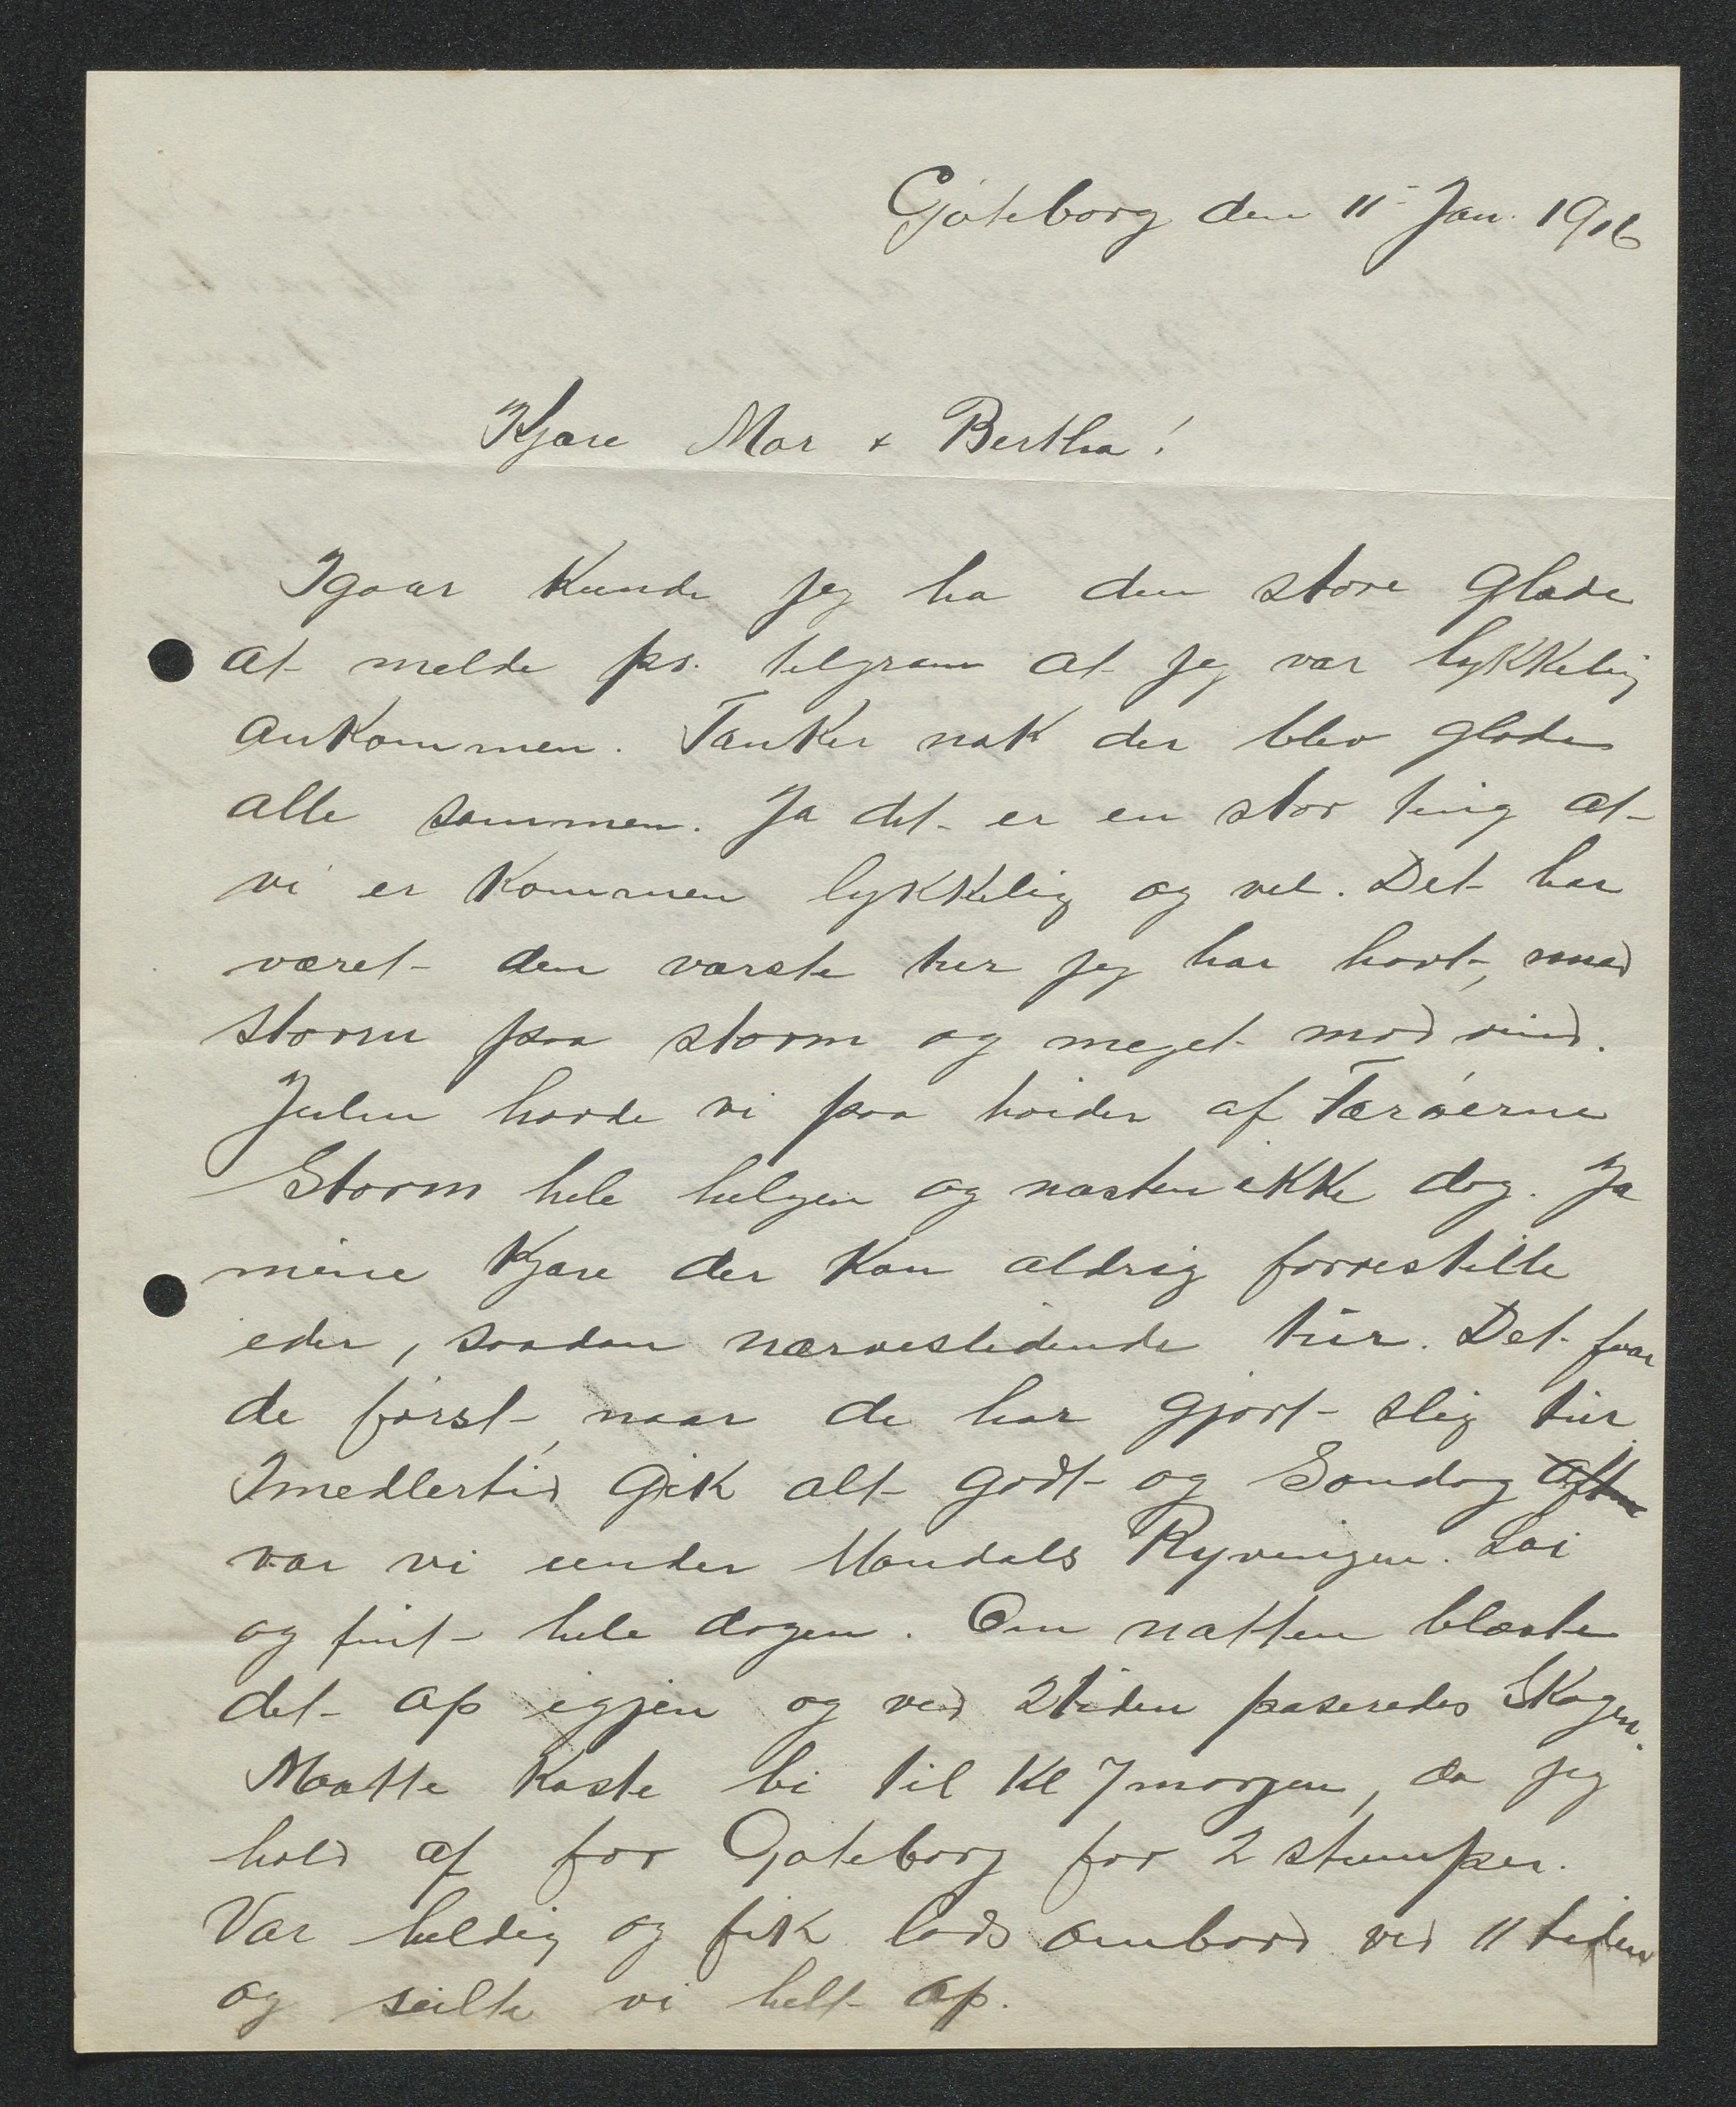 Gjöteborg den 11 Jan. 1916
Kjære Mor & Bertha!
Igaar kunde jeg ha den store glæde
at melde pr. telgram at jeg var lykkelig
ankommen. Tænker nok der blev glæde
alle sammen. Ja det er en stor ting at
vi er kommen lykkelig og vel. Det har
været den værste tur jeg har havt, med
storm paa storm og meget modvind.
Julen havde vi paa høiden af Færøerne
Storm hele helgen og næsten ikke dag. Ja
mine kjære der kan aldrig forrestille
eder, saadan nærveslidende tur. Det faar
de først, naar de har gjort slig tur.
Imedlertid gik alt godt og Søndag aften
var vi under Mandals Ryvingen. Løi
og fint hele dagen. Om natten blæste
det op igjen og ved 2tiden paseredes Skagen.
Maatte kaste bi til Kl 7 morgen, da jeg
hold af for Gjøteborg for 2 stumper.
Var heldig og fik lods ombord ved 11 tiden
og seilte vi helt op.